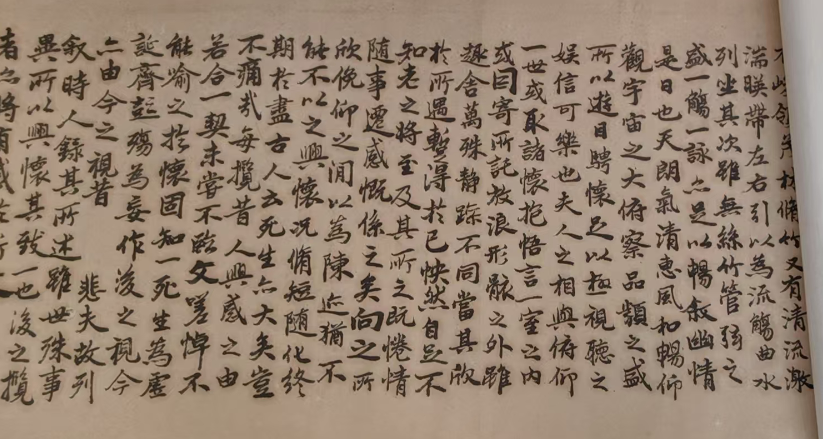 領茂林脩竹又有清流激
湍暎帶左右引以為流觴曲水
列坐其次雖無絲竹管弦之
盛一觴一詠亦足以暢叙幽情
是日也天朗氣清惠風和暢仰
觀宇宙之大俯察品類之盛
所以遊目騁懷足以極視聽之
娛信可樂也夫人之相與俯仰
一世或取諸懷抱悟言一室之內
或因寄所託放浪形骸之外雖
趣舍萬殊静躁不同當其欣
於所遇暫得於己怏然自足不
知老之將至及其所之既惓情
随事遷感慨係之矣向之所
欣俛仰之閒以為陳迹猶不
能不以之興懷況脩短随化終
期於盡古人云死生亦大矣豈
不痛哉每攬昔人興感之由
若合一契未嘗不臨文嗟悼不
能喻之於懷固知一死生為虛
誕齊彭殤為妄作後之視今
亦由今之視昔 悲夫故列
叙時人錄其所述雖世殊事
異所以興懷其致一也後之攬
者亦將有感於